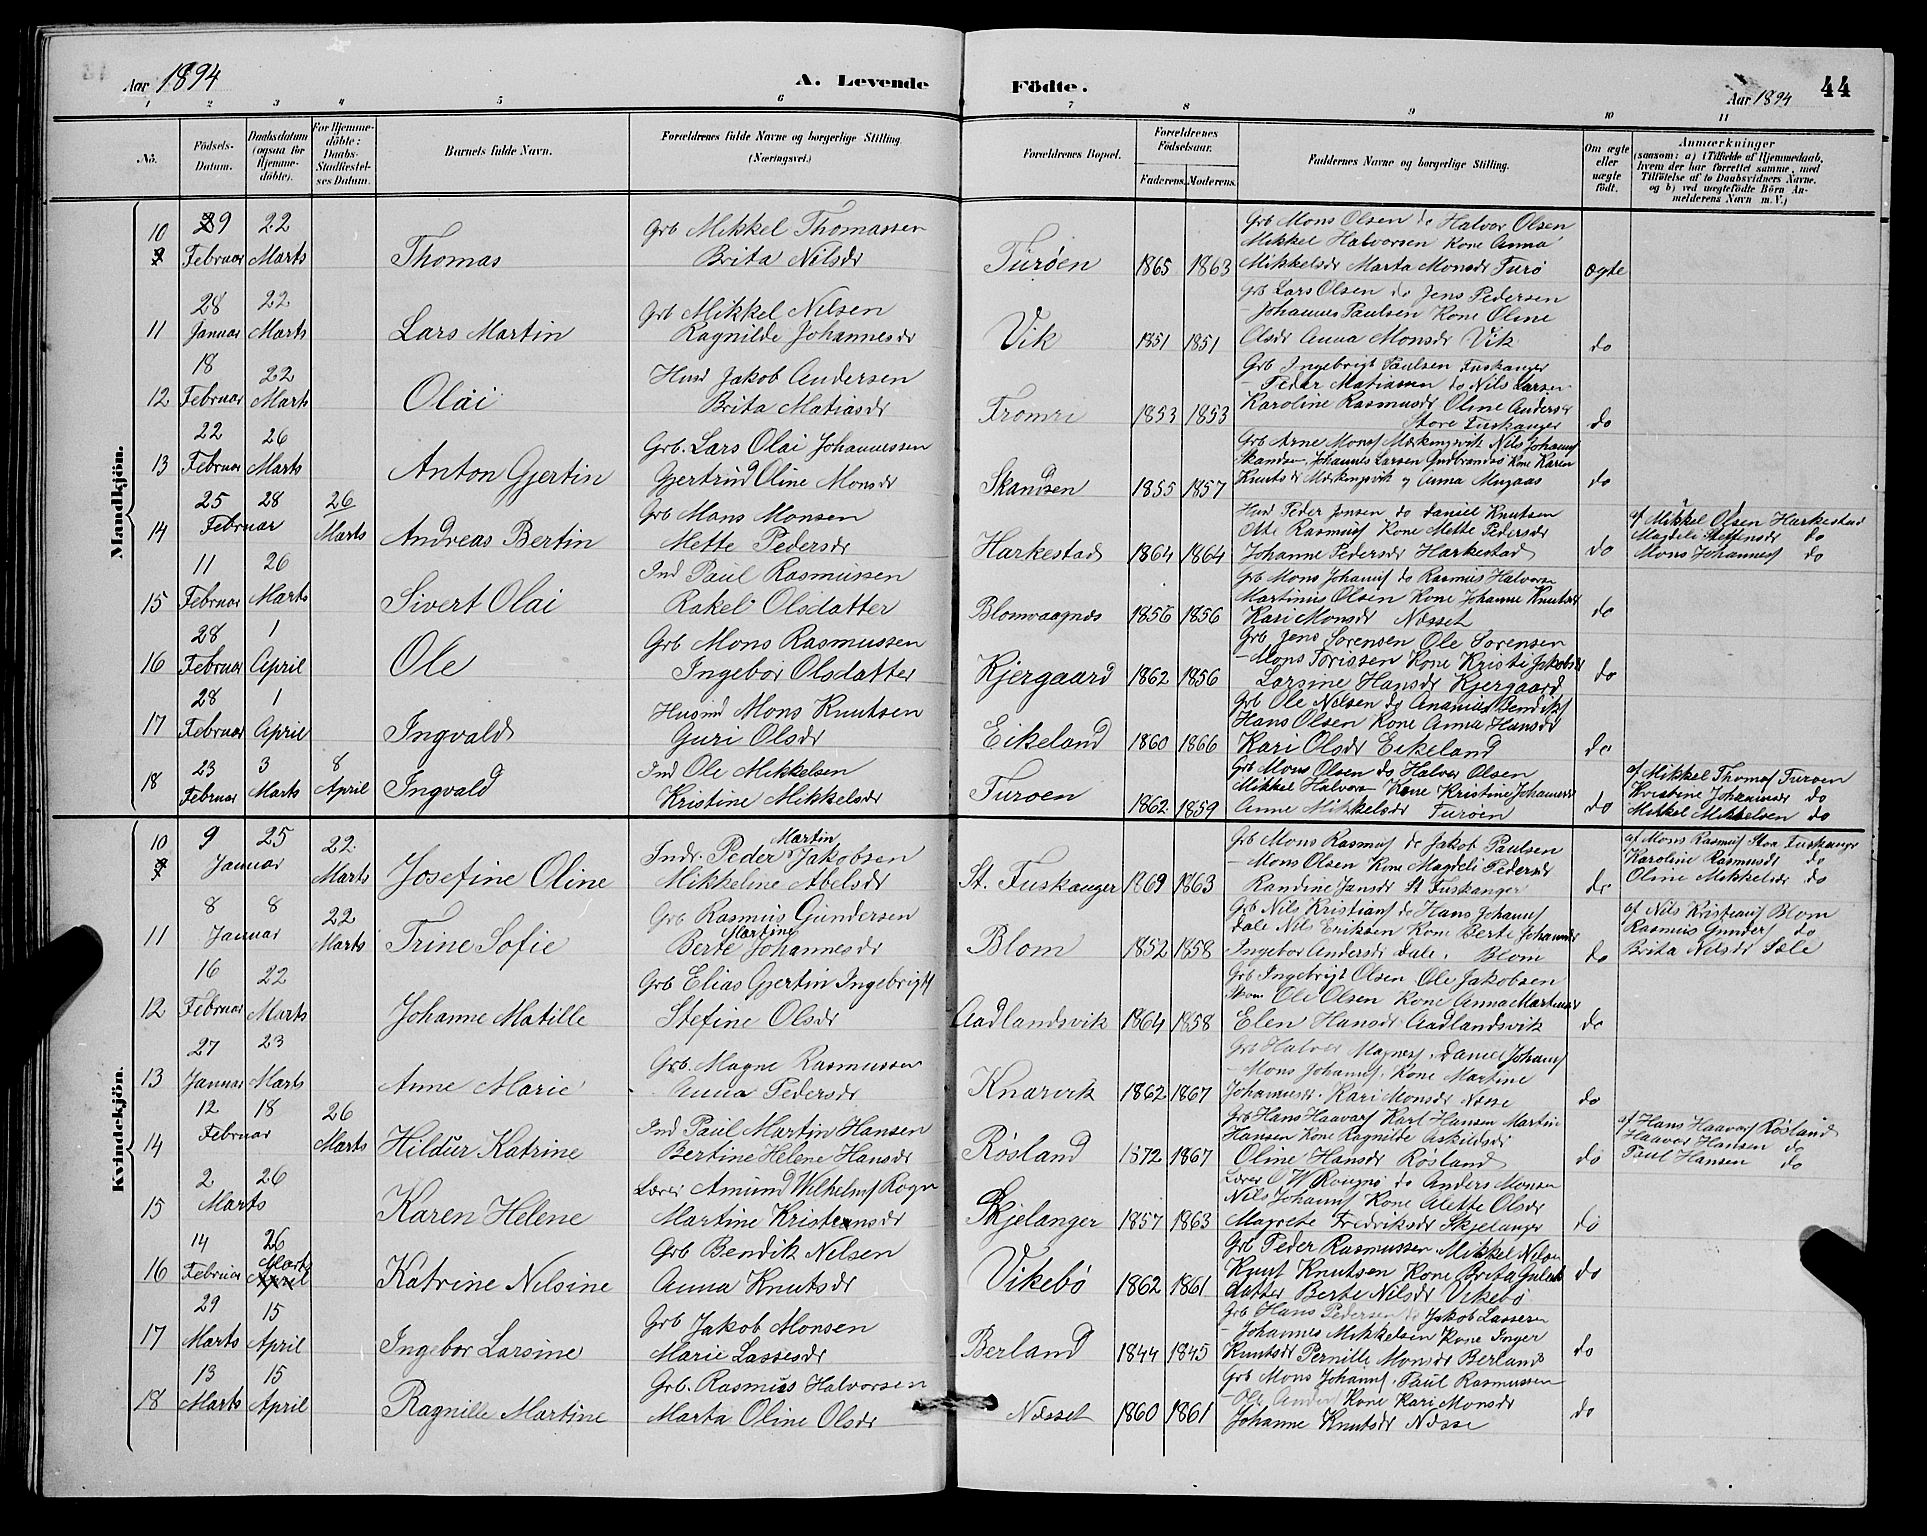 Aar 1894
A. Levende Födte.
Aar 1894
44
1 2 3 4 5 6 7 8 9 10 11
No.
Födsels-Datum.
Daabsdatum (ogsaa for Hjemme-döbte).
For Hjemme-döbte: Daabs-Stadfæstelses Datum.
Barnets fulde Navn.
Forældrenes fulde Navne og borgerlige Stilling. (Næringsvei.)
Forældrenes Bopæl.
Forældrenes Födselsaar.
Faderens. Moderens.
Faddernes Navne og borgerlige Stilling.
Om ægte eller uægte födt.
Anmærkninger
(saasom: a) i Tilfælde af Hjemmedaab,
hvem der har forrettet samme, med
Tilföielse af to Daabsvidners Navne,
og b) ved uægtefödte Börn An-
melderens Navn m. V.)
Mandkjön.
10 9 Februar 22 Marts Thomas
Grb Mikkel Thomassen
Brita Nilsdr
Turøen 1865 1863
Grb Mons Olsen do Halvor Olsen
Mikkel Halvorsen Kone Anna
Mikkelsdr Marta Monsdr Turø
ægte
11 28 Januar 22 Marts Lars Martin
Grb Mikkel Nilsen
Ragnilde Johannesdr
Vik 1851 1851
Grb Lars Olsen do Jens Pedersen
Johannes Paulsen Kone Oline
Olsdr Anna Monsdr Vik
do
12 18 Februar 22 Marts Olai
Husd Jakob Andersen
Brita Matiasdr
Tromri 1853 1853
Grb Ingebrigt Paulsen Fuskanger
Peder Matiassen do Nils Larsen
Karoline Rasmusdr Oline Andersdr
Store Fuskanger
do
13 22 Februar 26 Marts Anton Gjertin
Grb. Lars Olai Johannessen
Gjertrud Oline Monsdr
Skandsen 1855 1857
Grb Arne Mons Mækingsvik Nils Johanns
Skandsen, Johannes Larsen Gudbrandsö Kone Karen
Knutsdr Mækingsvik og Anna Mugaas
do
14 25 28 Februar 26 Marts Andreas Bertin
Grb Mons Monsen
Mette Pedersdr
Harkestad 1864 1864
Husd Peder Jensen do Daniel Knutsen
Ole Rasmus Kone Mette Pedersdr
Johanne Pedersdr Harkestad
do
af Mikkel Olsen Harkestad
Magdeli Steffensdr do
Mons Johannes do
15 11 Februar 26 Marts Sivert Olai
Ind Paul Rasmussen
Rakel Olsdatter
Blomvaagnæs 1856 1856
Grb Mons Johanns do Rasmus Halvorsen
Martinus Olsen Kone Johanne Knutsdr
Kari Monsdr Næsset
do
16 28 Februar 1 April Ole
Grb Mons Rasmussen
Ingebor Olsdatter
Kjergaard 1862 1856
Grb Jens Sorensen Ole Sorensen
Mons Torissen Kone Kriste Jakobsdr
Larsine Hansdr Kjergaard
do
17 28 Februar 1 April Ingvald
Husind Mons Knutsen
Guri Olsdr
Eikeland 1860 1866
Grb Ole Nelsen do Ananias Bendiks
Hans Olsen Kone Anna Hansdr
Kari Olsdr Eikeland
do
18 23 Februar 3 Marts 8 April Ingvald
Ind Ole Mikkelsen
Kristine Mikkelsdr
Turoen 1862 1859
Grb Mons Olsen do Halvor Olsen
Mikkel Halvors Kone Kristine Johannesdr
Anne Mikkelsdr Turoen
do
af Mikkel Thomas Turoen
Kristine Johannesdr do
Mikkel Mikkelsen do
Kvindekjön.
10 9 25 Januar 22 Marts Josefine Oline
Indr. Peder Martin Jakobsen
Mikkeline Abelsdr
St. Fuskanger 1869 1863
Grb Mons Rasmus do Jakob Paulsen
Mons Olsen Kone Magdeli Pedersdr
Randine Jansdr St Fuskanger
do
af Mons Rasmus Store Fuskanger
Karoline Rasmusdr do
Oline Mikkelsdr do
11 8 8 Januar 22 Marts Trine Sofie
Grb Rasmus Gundersen
Berte Martine Johannesdr
Blom 1852 1858
Grb Nils Kristians do Hans Johanns
Dale Nils Eriksen Kone Berte Johannesdr
Ingebor Andersdr Dale. Blom
do
af Nils Kristians Blom
Rasmus Gunders do
Brita Nilsdr Sæle
12 16 Februar 22 Marts Johanne Matille
Grb Elias Gjertin Ingebrigts
Stefine Olsdr
Aadlandsvik 1864 1858
Grb Ingebrigt Olsen Ole Jakobsen
Ole Olsen Kone Anna Martinsdr
Elen Hansdr Aadlandsvik
do
13 27 Januar 23 Marts Anne Marie
Grb. Magne Rasmussen
Anna Pedersdr
Knarvik 1862 1867
Grb Halvor Magnes, Daniel Johanns
Mons Johanns, Kone Martine
Johannesdr. Kari Monsdr Næsse
do
14 12 18 Februar 26 Marts Hildur Katrine
Ind Paul Martin Hansen
Bertine Helene Hansdr
Røsland 1872 1867
Grb Hans Haavars Karl Hansen Martin
Hansen Kone Ragnilde Askildsdr
Oline Hansdr Røsland
do
af Hans Haavars Røsland
Haavar Hansen do
Paul Hansen do
15 2 26 Marts Karen Helene
Lærer Amund Wilhelms Rogn
Martine Kristensdr
Skjelanger 1857 1863
Lærer O W Rougnø do Anders Monsen
Nils Johanns Kone Alette Olsdr
Magrete Fredriksdr Skjelanger
do
16 14 Februar 26 Marts Katrine Nilsine
Grb Bendik Nelsen
Anna Knutsdr
Vikebö 1862 1861
Grb Peder Rasmussen Mikkel Nilsen
Knut Knutsen Kone Brita
datter Berte Nilsdr Vikebö
do
17 29 Marts 15 April Ingebor Larsine
Grb Jakob Monsen
Marie Lassesdr
Berland 1844 1845
Grb Hans Pedersen do Jakob Lassesen
Johannes Mikkelsen Kone Inger
Knutsdr Pernille Monsdr Berland
do
18 13 Marts 15 April Ragnille Martine
Grb. Rasmus Halvorsen
Marta Oline Olsdr
Næsset 1860 1861
Grb Mons Johanns. Paul Rasmussen
Ole Anders Kone Kari Monsdr
Johanne Knutsdr Næsse
do